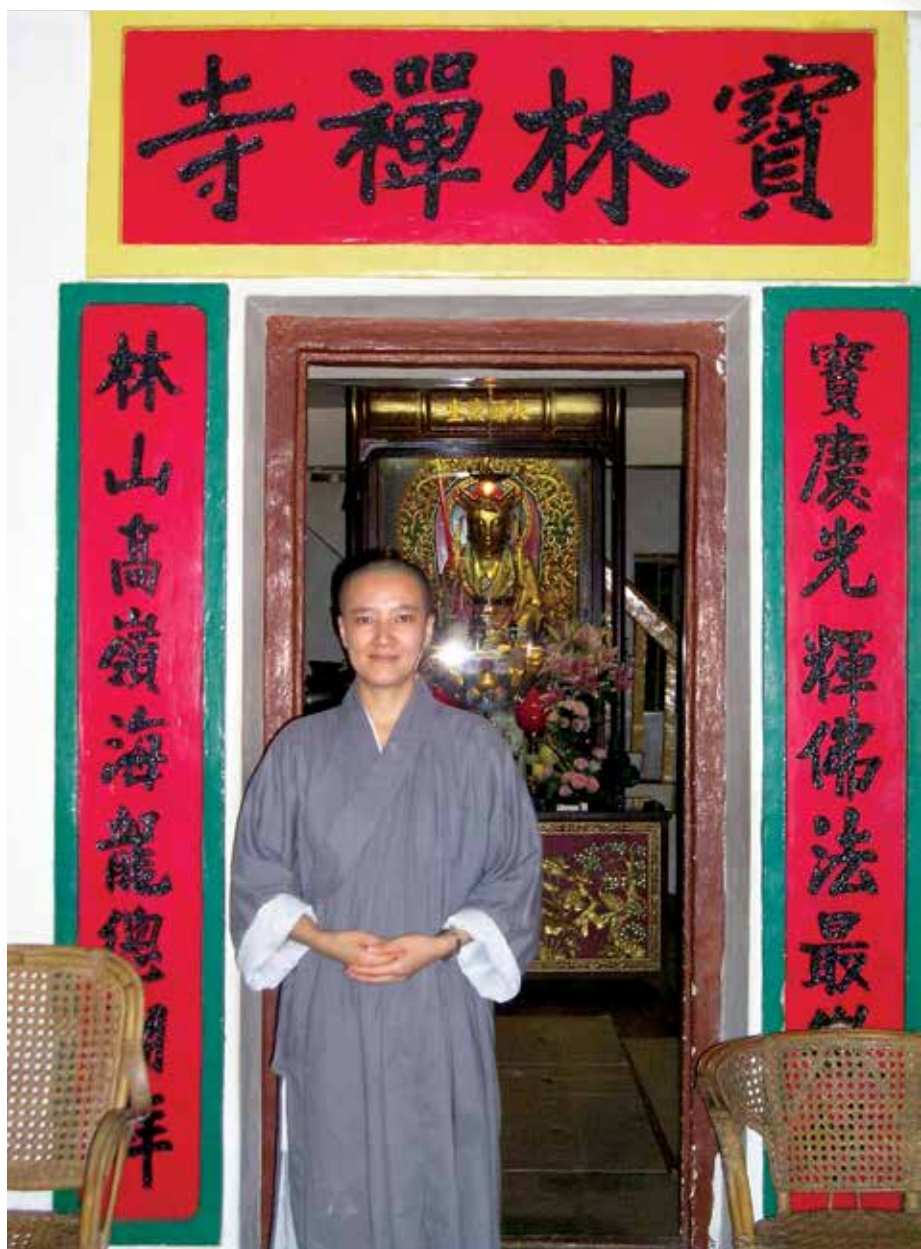 寶林禪寺
寶慶光輝佛法最
林山高嶺海龍總